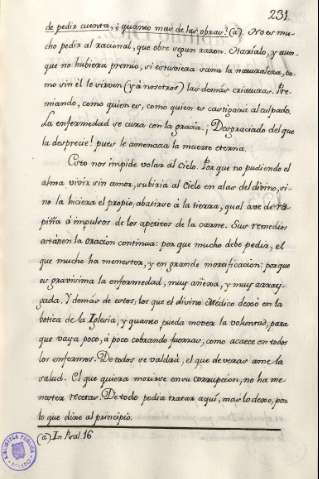 231.
de pedir cuenta, ¿quánto mas de las obras? (a). No es mu-
cho pedir al racional, que obre segun razon. Haríalo, y aun-
que no hubiera premio, si estuviera sana la naturaleza, co-
mo sin él le sirven (y á nosotros) las demás criaturas. Pre-
miando, como quien es, como quien es castigará al culpado.
La enfermedad se cura con la gracia. ¡Desgraciado del que
la desprecie! pues le amenaza la muerte eterna.
Esto nos impide volar al Cielo. Porque no pudiendo el
alma vivir sin amor, subiria al Cielo en alas del divino, si
no la hiciera el propio abatirse á la tierra, qual ave de ra-
piña á impulsos de los apetitos de la carne. Sus remedios
estàn en la oracion continua: porque mucho debe pedir, el
que mucho ha menester, y en grande mortificacion: porque
es gravisima la enfermedad, muy añeja, y muy array-
gada. Y demàs de estos, los que el divino Médico dexó en la
botica de la Iglesia, y quanto pueda mover la voluntad, para
que vaya poco, á poco cobrando fuerzas, como acaece en todos
los enfermos. De todos se valdrá, el que de veras ame la
salud. El que quiera morirse en su corrupcion, no ha me-
nester recetas. De todo podia tratar aquí, mas lo dexo, por
lo que dixe al principio.
(a) In Psal. 16
BIBLIOTECA PUBLICA